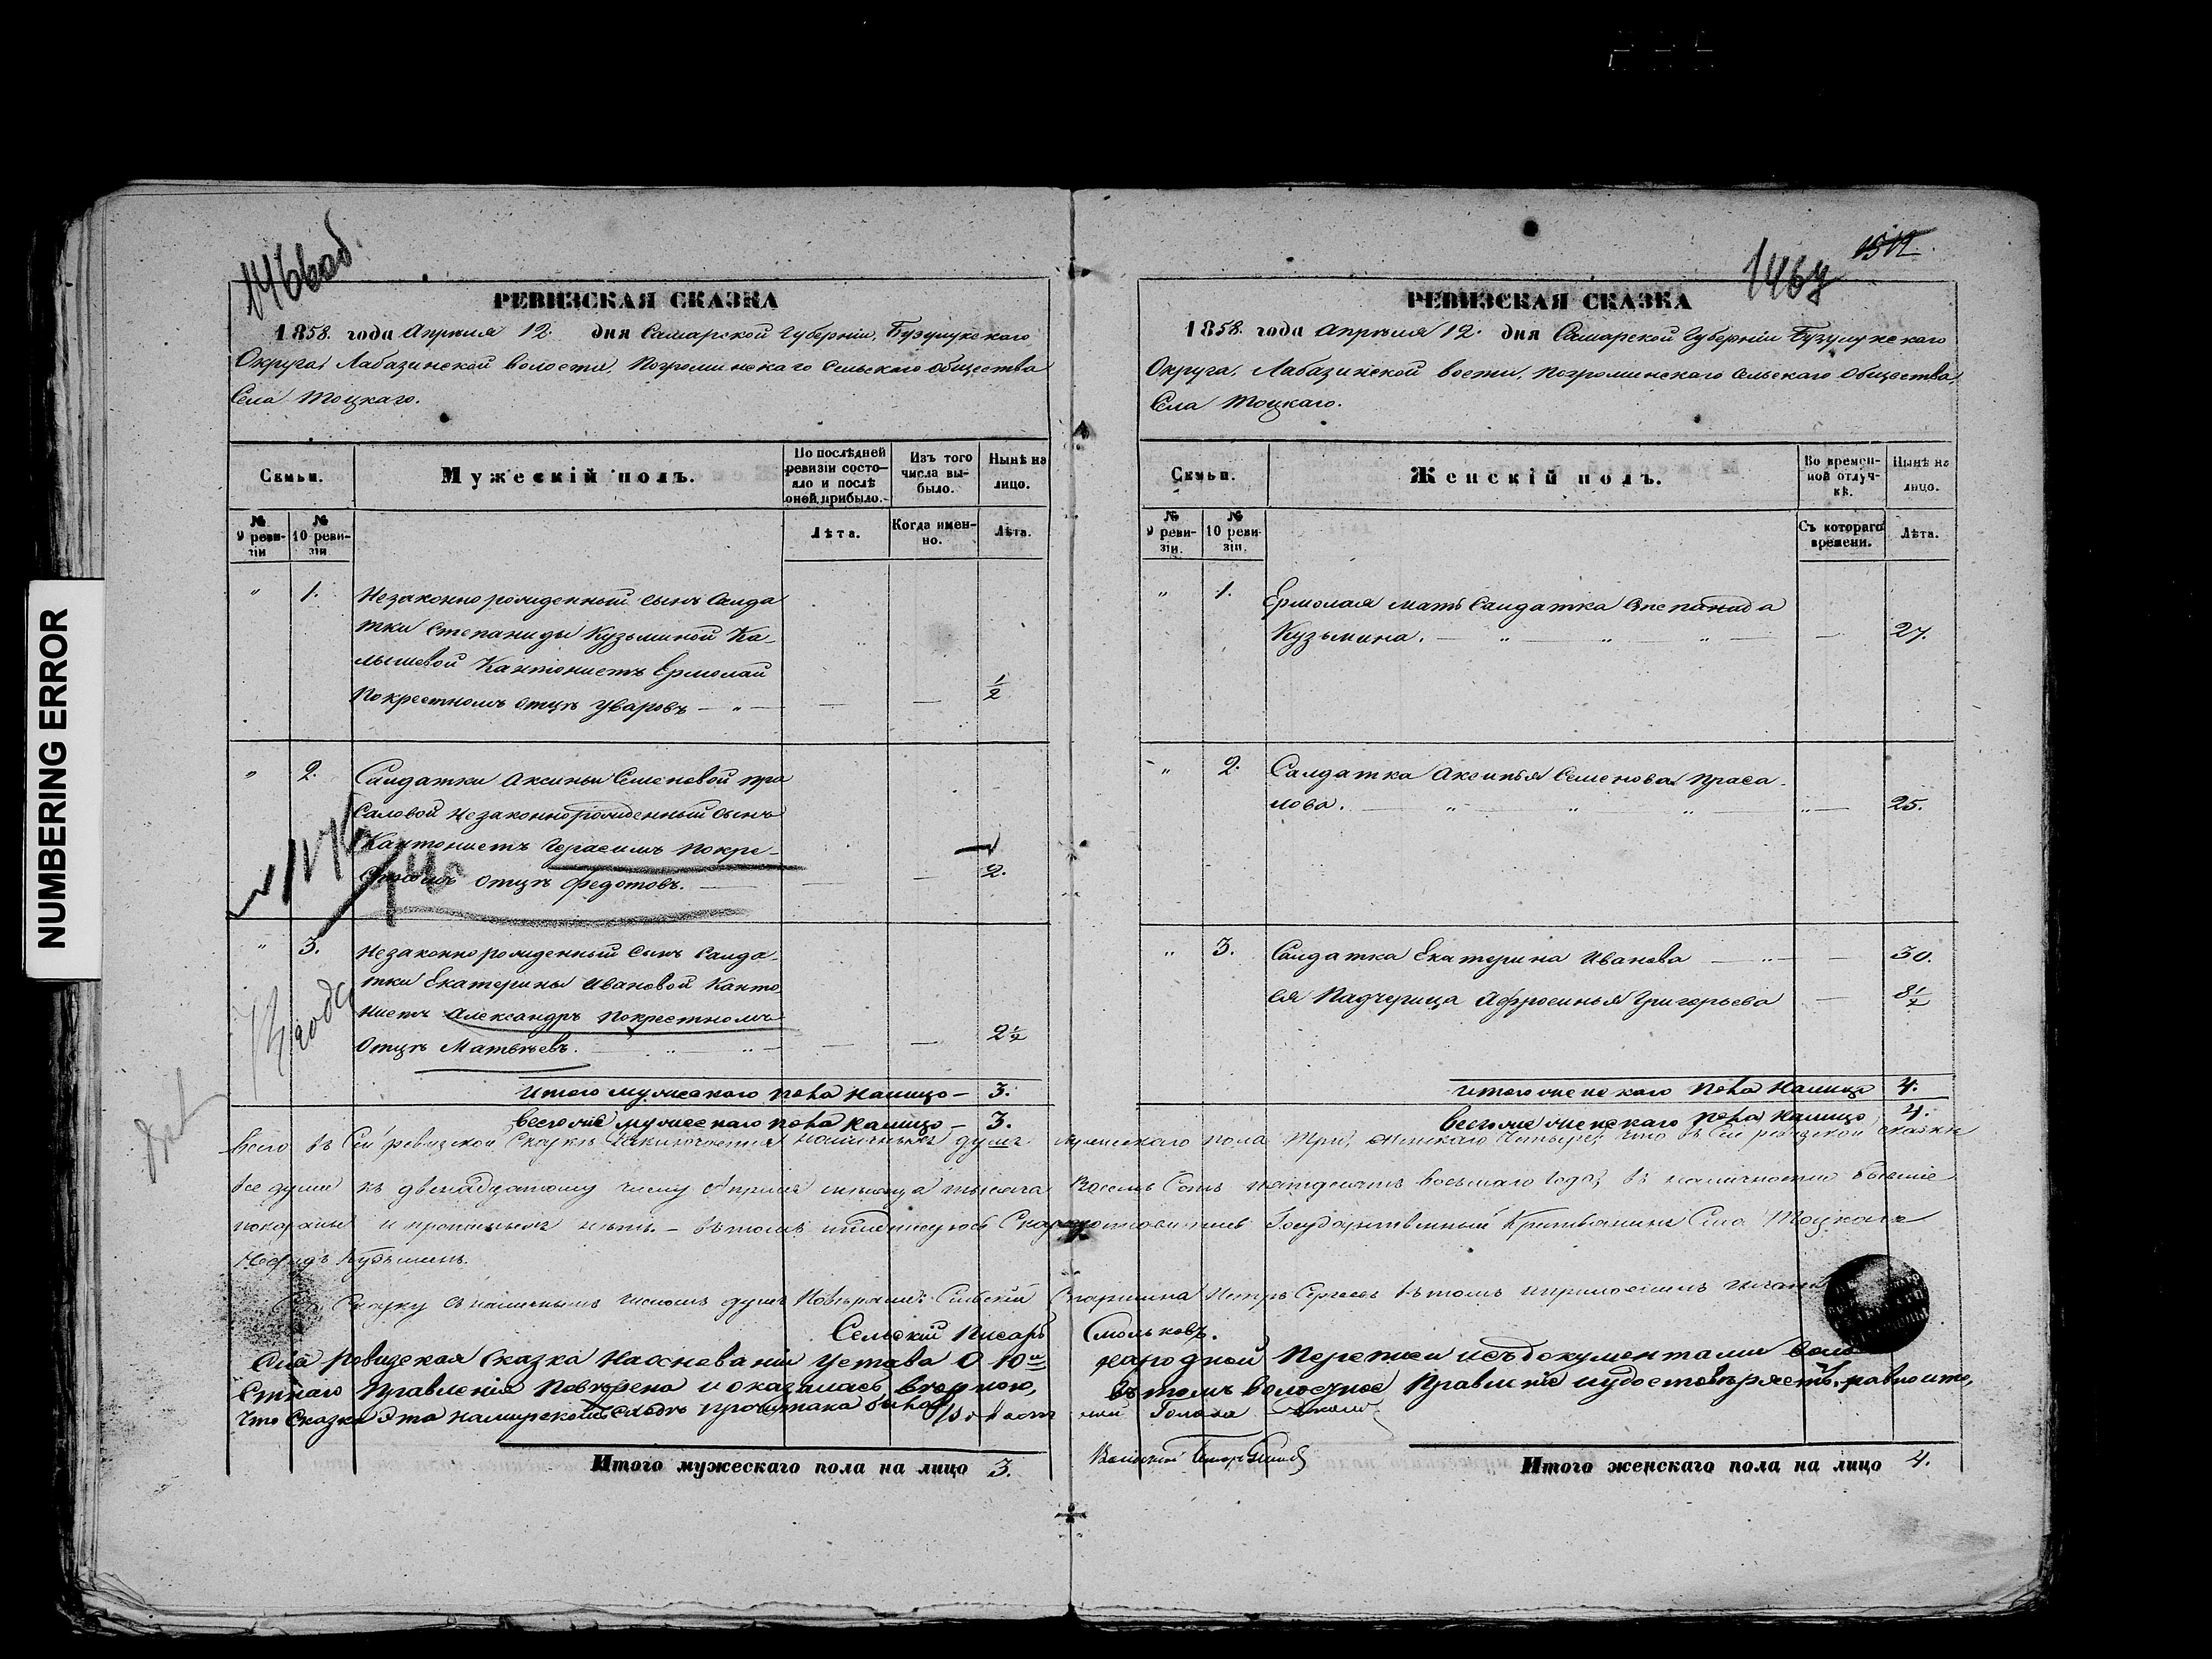 NUMBERING ERROR
1466 об.
РЕВИЗСКАЯ СКАЗКА
1858. года Апрѣля 12. дня Самарской Губерніи, Бузулукскаго
Округа, Лабазинской волости, Погроминскаго Сельскаго общества
Села Тоцкаго.
Семьи.
Мужескій полъ.
По послѣдней ревизіи состояло и послѣ оной прибыло.
Изъ того числа выбыло.
Нынѣ на лицо.
№ 9 ревизіи
№ 10 ревизіи
Лѣта.
Когда именно.
Лѣта.
" 1. Незаконно рожденный сынъ Салда
тки Степаниды Кузьминой Ка-
лышевой Кантонистъ Ермолай
По крестномъ отцѣ Уваровъ — " — 1/2
" 2. Салдатки Аксиньи Семеновой Пра
саловой незаконнорожденный сынъ
Кантонистъ Герасимъ по кре-
стномъ отцѣ Федотовъ. — 2.
" 3. Незаконно рожденный сынъ Салда-
тки Екатерины Ивановой Канто
нистъ Александръ по крестномъ
отцѣ Матвѣевъ. 2 1/2
Итого мужескаго пола налицо — 3.
Всего же мужескаго пола налицо — 3.
1467
РЕВИЗСКАЯ СКАЗКА
1858. года Апрѣля 12. дня Самарской Губерніи Бузулукскаго
Округа, Лабазинской вости, Погроминскаго Сельскаго Общества,
Села Тоцкаго.
Семьи.
Женскій полъ.
Во временной отлучкѣ.
Нынѣ на лицо.
№ 9 ревизіи.
№ 10 ревизіи.
Съ котораго времени.
Лѣта.
" 1. Ермолая мать Салдатка Степанида
Кузьмина. 27.
" 2. Салдатка Аксинья Семенова Праса-
лова. 25.
" 3. Салдатка Екатерина Иванова 30.
ея Падчерица Афросинья Григорьева 8 1/2
Итого женскаго пола налицо 4.
Всего же женскаго пола налицо 4.
Всего въ сей ревизской сказкѣ заключается наличныхъ душъ мужескаго пола три, женскаго четыре, что въ сей ревизской сказкѣ
все души къ двенадцатому числу Апрѣля мѣсяца тысяча восемь сотъ пятдесятъ восьмаго года въ наличности бывшіе
показаны и прописныхъ нѣтъ. — въ томъ Государственный Крестьянинъ Села Тоцкаго
Кузьминъ.
Сказку съ наличнымъ числомъ душъ повѣрялъ Сельскій Старшина Петръ Сергеевъ въ томъ и приложилъ печать
Сельскій Писарь Смольковъ.
Сія ревизская Сказка на основаніи Устава О 10й народной переписи и съ документами Воло
стнаго Правленія повѣрена и оказалась вѣрною, въ томъ волостное Правленіе и удостовѣряетъ, равно и то,
что Сказка эта на мирскомъ сходѣ прочитана была. Волостной Голова
Итого мужескаго пола на лицо 3.
Итого женскаго пола на лицо 4.